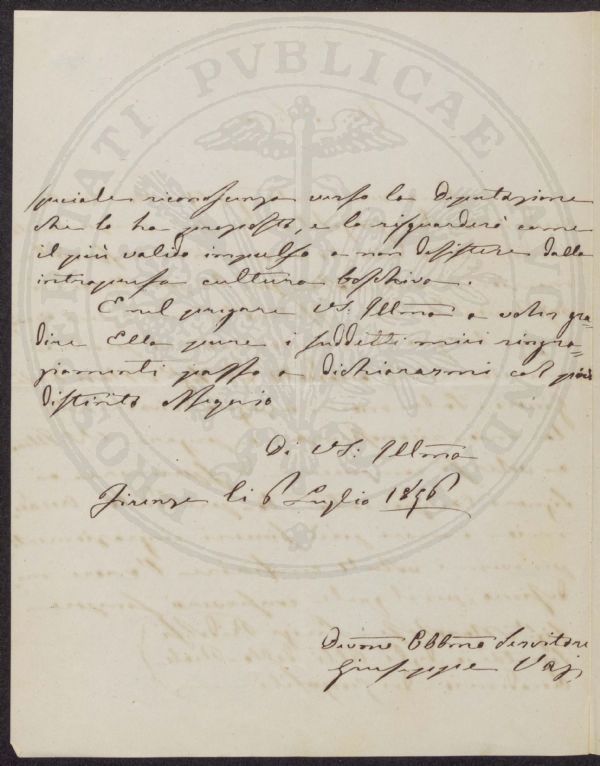 PROSPERITATI PVBLICAE
speciale riconoscenza verso la Deputazione
che lo ha proposto, e lo risguarderò come
il più valido impulso a non desistere dalla
intrapresa cultura boschiva.
E nel pregare VS: Illma a voler gra-
dire Ella pure i suddetti miei ringra-
ziamenti passo a dichiararmi col più
distinto Ossequio
Di VS: Illma
Firenze li 6 Luglio 1856
Devmo Obbmo Servitore
Giuseppe Vaj